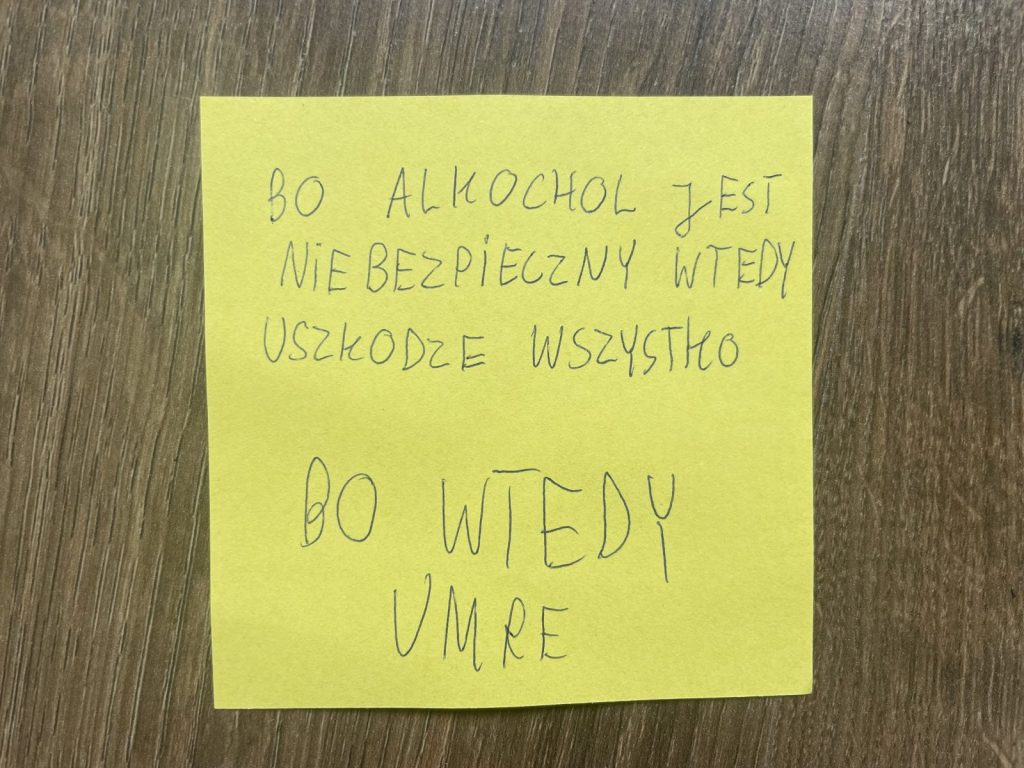 BO ALKOCHOL JEST
NIEBEZPIECZNY WTEDY
USZKODZE WSZYSTKO
BO WTEDY
UMRE